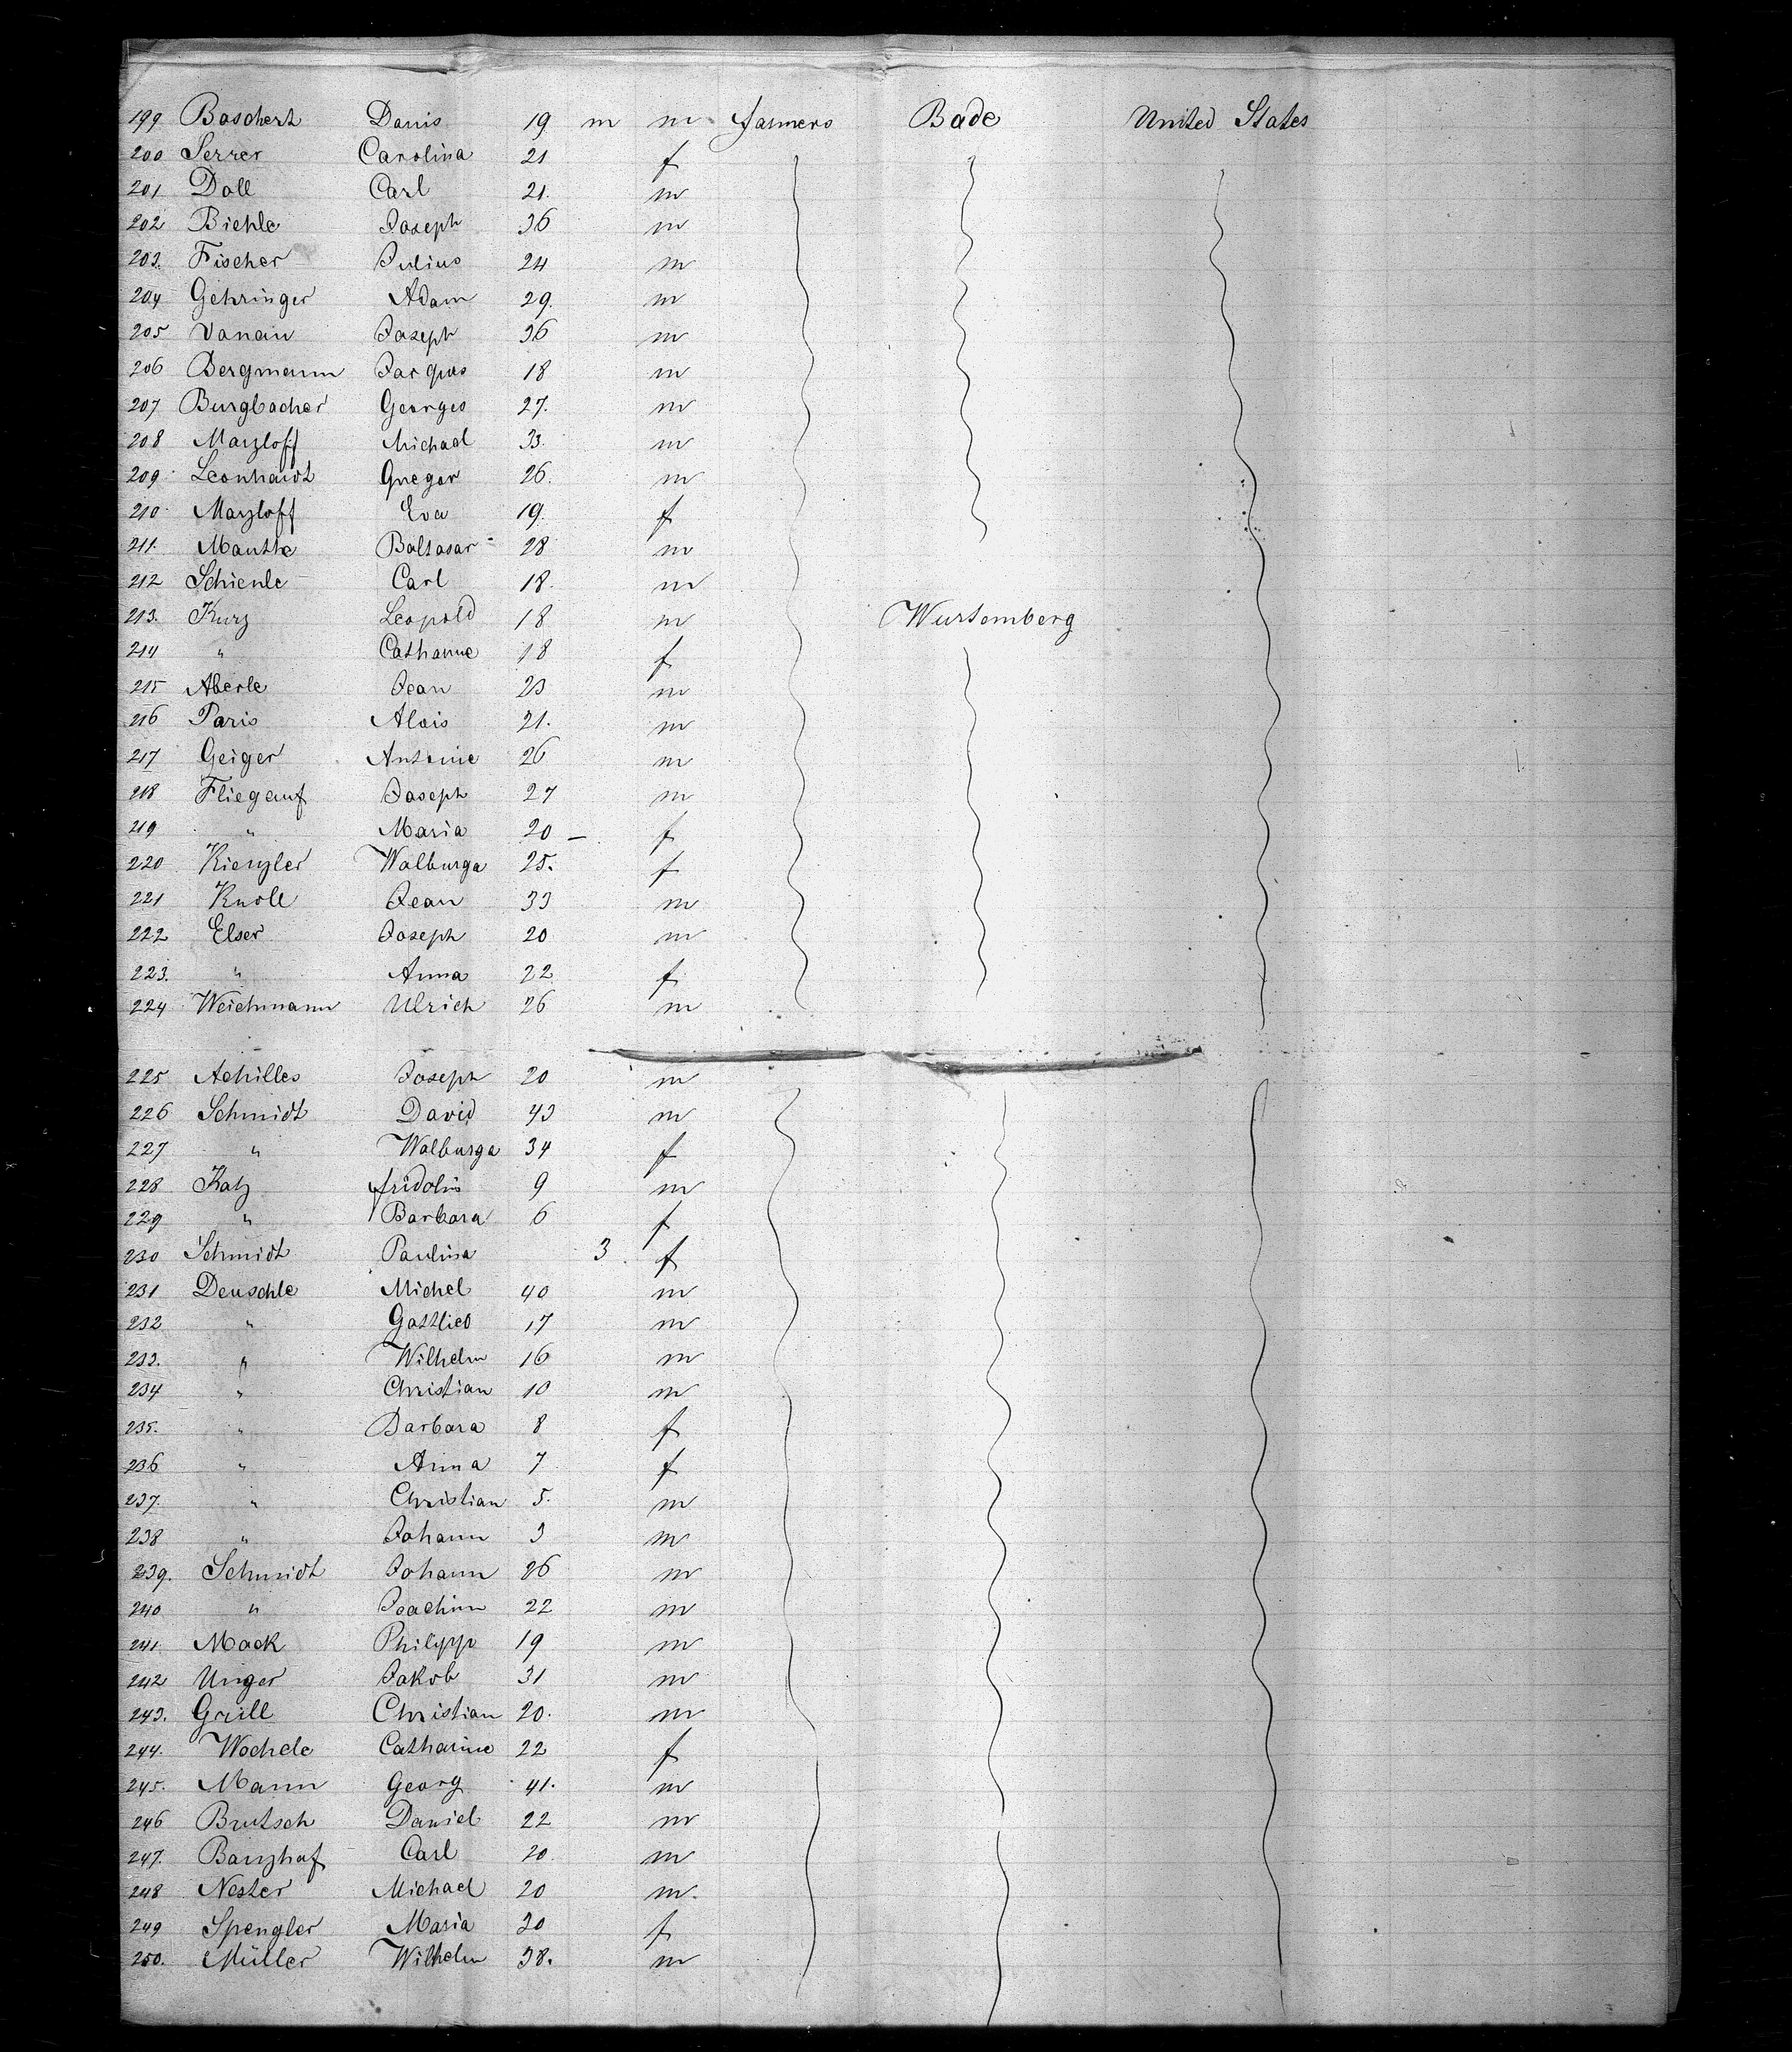 199 Boschert Denis 19 m m farmers Bade United States
200 Serrer Carolina 21 f
201 Doll Carl 21. m
202 Biehle Joseph 36 m
203. Fischer Julius 24 m
204 Gehringer Adam 29. m
205 Vanau Joseph 36 m
206 Bergmann Jacques 18 m
207 Burgbacher Georges 27. m
208 Marzloff Michael 33. m
209 Leonhardt Gregor 26. m
210 Marzloff Eva 19. f
211. Mauthe Baltasar 28 m
212 Schienle Carl 18. m
213. Kurz Leopold 18 m Wurtemberg
214 " Catharine 18 f
215 Aberle Jean 23 m
216 Paris Alois 21. m
217 Geiger Antoine 26 m
218 Fliegauf Joseph 27 m
219 " Maria 20 — f
220 Kienzler Walburga 25. f
221 Knoll Jean 33 m
222 Elser Joseph 20 m
223. " Anna 22 f
224 Weichmann Ulrich 26 m
225 Achilles Joseph 20 m
226 Schmidt David 43 m
227 " Walburga 34 f
228 Katz fridolin 9 m
229 " Barbara 6 f
230 Schmidt Paulina 3. f
231 Deuschle Michel 40 m
232 " Gottlieb 17 m
233. " Wilhelm 16 m
234 " Christian 10 m
235. " Barbara 8 f
236 " Anna 7 f
237. " Christian 5. m
238 " Johann 3 m
239. Schmidt Johann 26 m
240 " Joachim 22 m
241. Mack Philipp 19 m
242 Unger Jakob 31 m
243. Grüll Christian 20. m
244. Wochele Catharine 22 f
245. Mann Georg 41. m
246 Brutsch Daniel 22 m
247. Banzhaf Carl 20. m
248 Nester Michael 20 m.
249 Spengler Maria 30 f
250. Müller Wilhelm 38. m